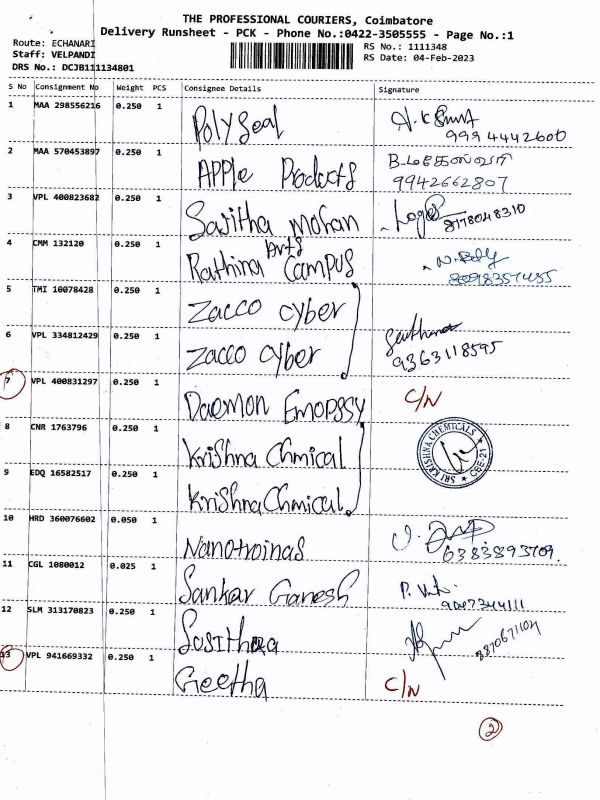 THE PROFESSIONAL COURIERS, Coimbatore
Delivery Runsheet - PCK - Phone No.:0422-3505555 - Page No.:1
Route: ECHANARI
Staff: VELPANDI
DRS No.: DCJB111134801
RS No.: 1111348
RS Date: 04-Feb-2023
S No Consignment No Weight PCS Consignee Details Signature
1 MAA 298556216 0.250 1 Polyseal
9994442600
2 MAA 570453897 0.250 1 APPle Products
9942662807
3 VPL 400823682 0.250 1 Sajitha Mohan
8778048310
4 CMM 132120 0.250 1 Rathina Arts Campus
5 TMI 10078428 0.250 1 Zacco cyber
6 VPL 334812429 0.250 1 Zacco cyber
9363118595
7 VPL 400831297 0.250 1 Daemon Emopssy C/N
8 CNR 1763796 0.250 1 Krishna Chmical
SRI KRISHNA CHEMICALS CBE-21
9 EDQ 16582517 0.250 1 Krishna Chmical
10 HRD 360076602 0.050 1
6383893709
11 CGL 1080012 0.025 1 Sankar Ganesh
12 SLM 313170823 0.250 1
13 VPL 941669332 0.250 1 Geetha C/N
2